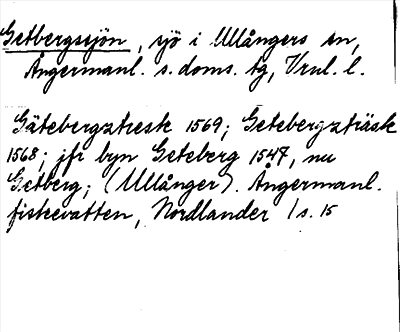 Getbergssjön, sjö i Ullångers sn,
Ångermanl. s. doms. tg, Vrnl. l.
Gätebergztresk 1569; Getebergzträsk
1568; jfr byn Geteberg 1547, nu
Getberg; (Ullånger). Ångermanl.
fiskevatten, Nordlander / s. 15